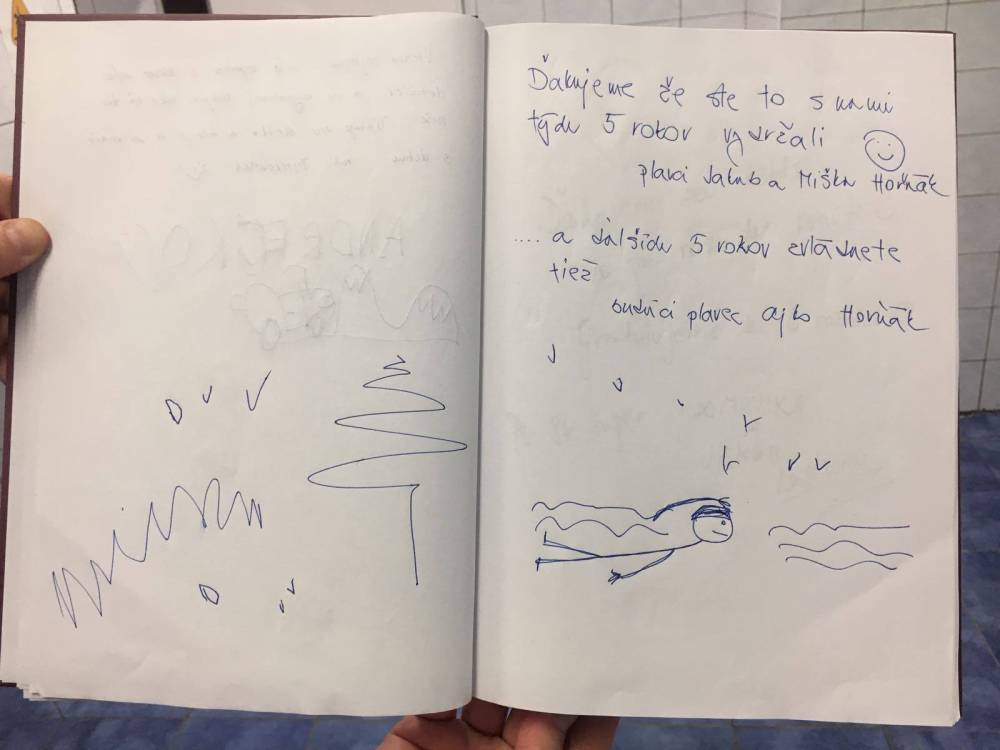 Ďakujeme že ste to s nami
tých 5 rokov vydržali
plavci Jakub a Miška Horňák
.... a ďalších 5 rokov zvládnete
tiež
budúci plavec Horňák